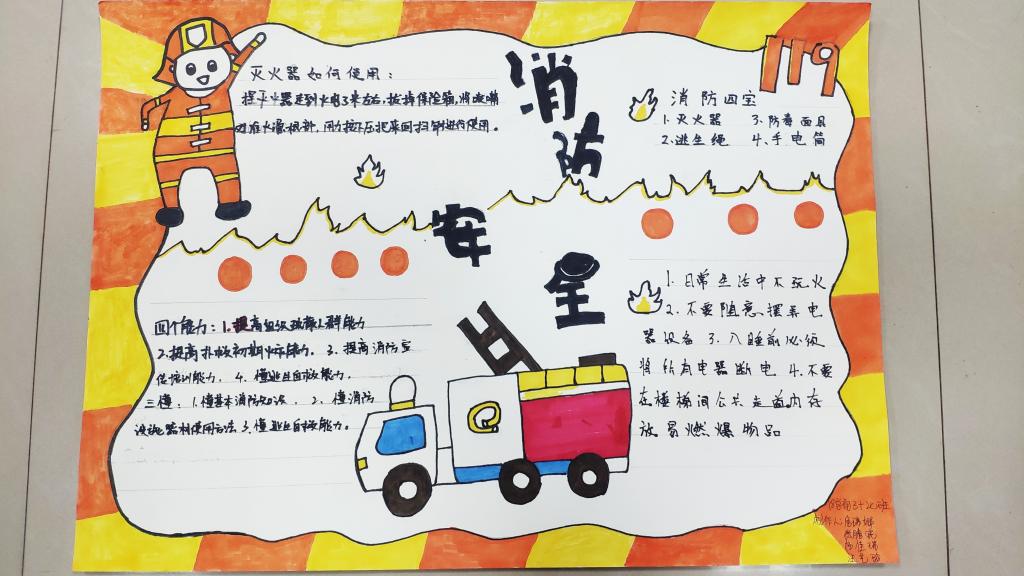 灭火器如何使用：
提灭火器走到火焰3米左右，拔掉保险箱，将喷嘴
对准火源根部，用力按下压把来回扫射进行使用。
消防
安全
119
消防四宝
1.灭火器 3.防毒面具
2.逃生绳 4.手电筒
四个能力：1.提高组织疏散人群能力
2.提高扑救初期火灾能力。3.提高消防宣
传培训能力。4.懂逃生自救能力。
三懂：1.懂基本消防知识。2.懂消防
设施器材使用方法 3.懂逃生自救能力。
1.日常生活中不玩火
2.不要随意摆弄电
器设备 3.入睡前必须
将所有电器断电 4.不要
在楼梯间公共走道内存
放易燃爆物品